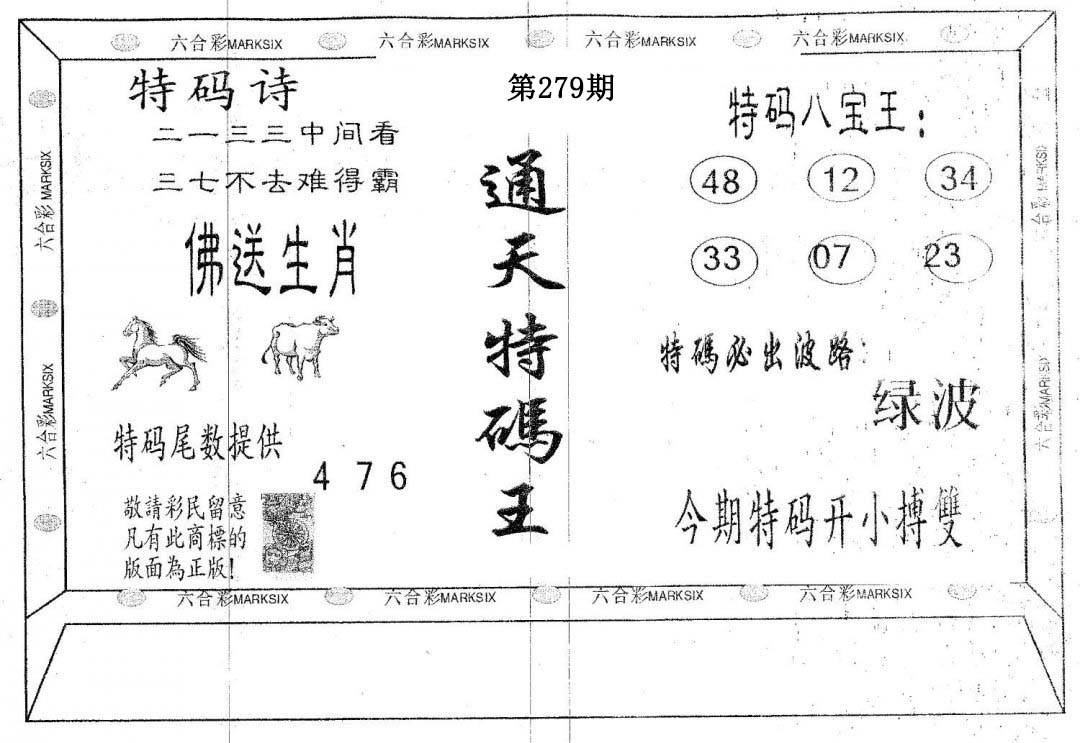 六合彩MARKSIX 六合彩MARKSIX 六合彩MARKSIX 六合彩MARKSIX
特码诗
第279期
二一三三中间看
三七不去难得霸
佛送生肖
特码尾数提供
4 7 6
敬請彩民留意
凡有此商標的
版面為正版!
通天特碼王
特码八宝王:
48 12 34
33 07 23
特碼必出波路:
绿波
今期特码开小搏雙
六合彩MARKSIX
六合彩MARKSIX
六合彩MARKSIX
六合彩MARKSIX
六合彩MARKSIX 六合彩MARKSIX 六合彩MARKSIX 六合彩MARKSIX